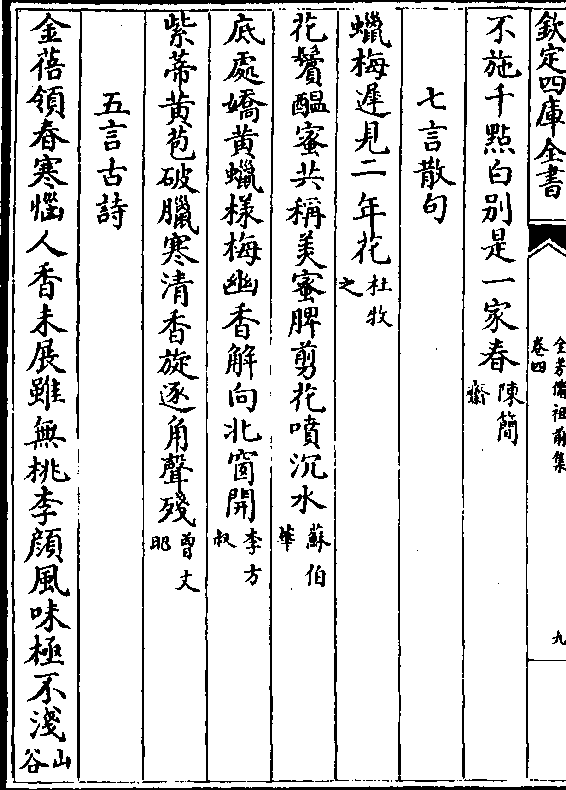 欽定四庫全書
全芳備祖前集
卷四
九
不施千點白別是一家春陳簡齋
七言散句
蠟梅遲見二年花杜牧之
花鬚醖蜜共稱美蜜脾剪花噴沉水蘇伯華
底處嬌黃蠟樣梅幽香解向北窗開李方叔
紫蒂黄苞破臘寒清香旋逐角聲殘曾文昭
五言古詩
金蓓領春寒惱人香未展雖無桃李顔風味極不淺山谷